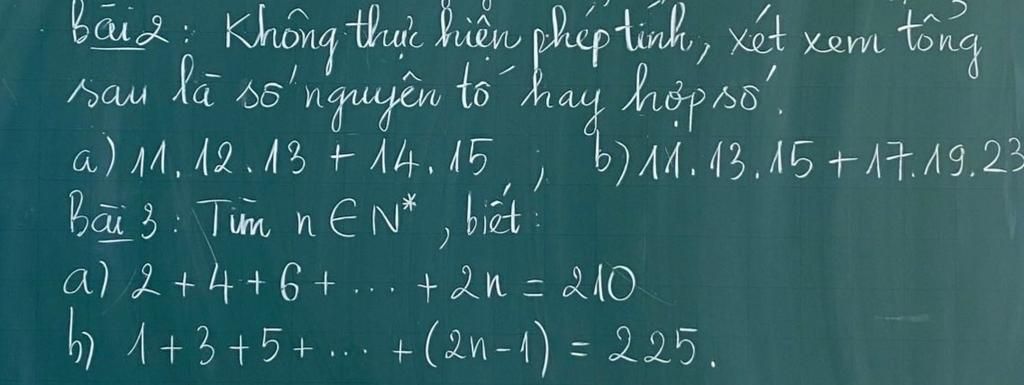 Bài 2: Không thực hiện phép tính, xét xem tổng
sau là số nguyên tố hay hợp số.
a) 11. 12. 13 + 14. 15 ; b) 11. 13. 15 + 17. 19. 23
Bài 3: Tìm n ∈ N*, biết:
a) 2 + 4 + 6 + ... + 2n = 210
b) 1 + 3 + 5 + ... + (2n - 1) = 225.